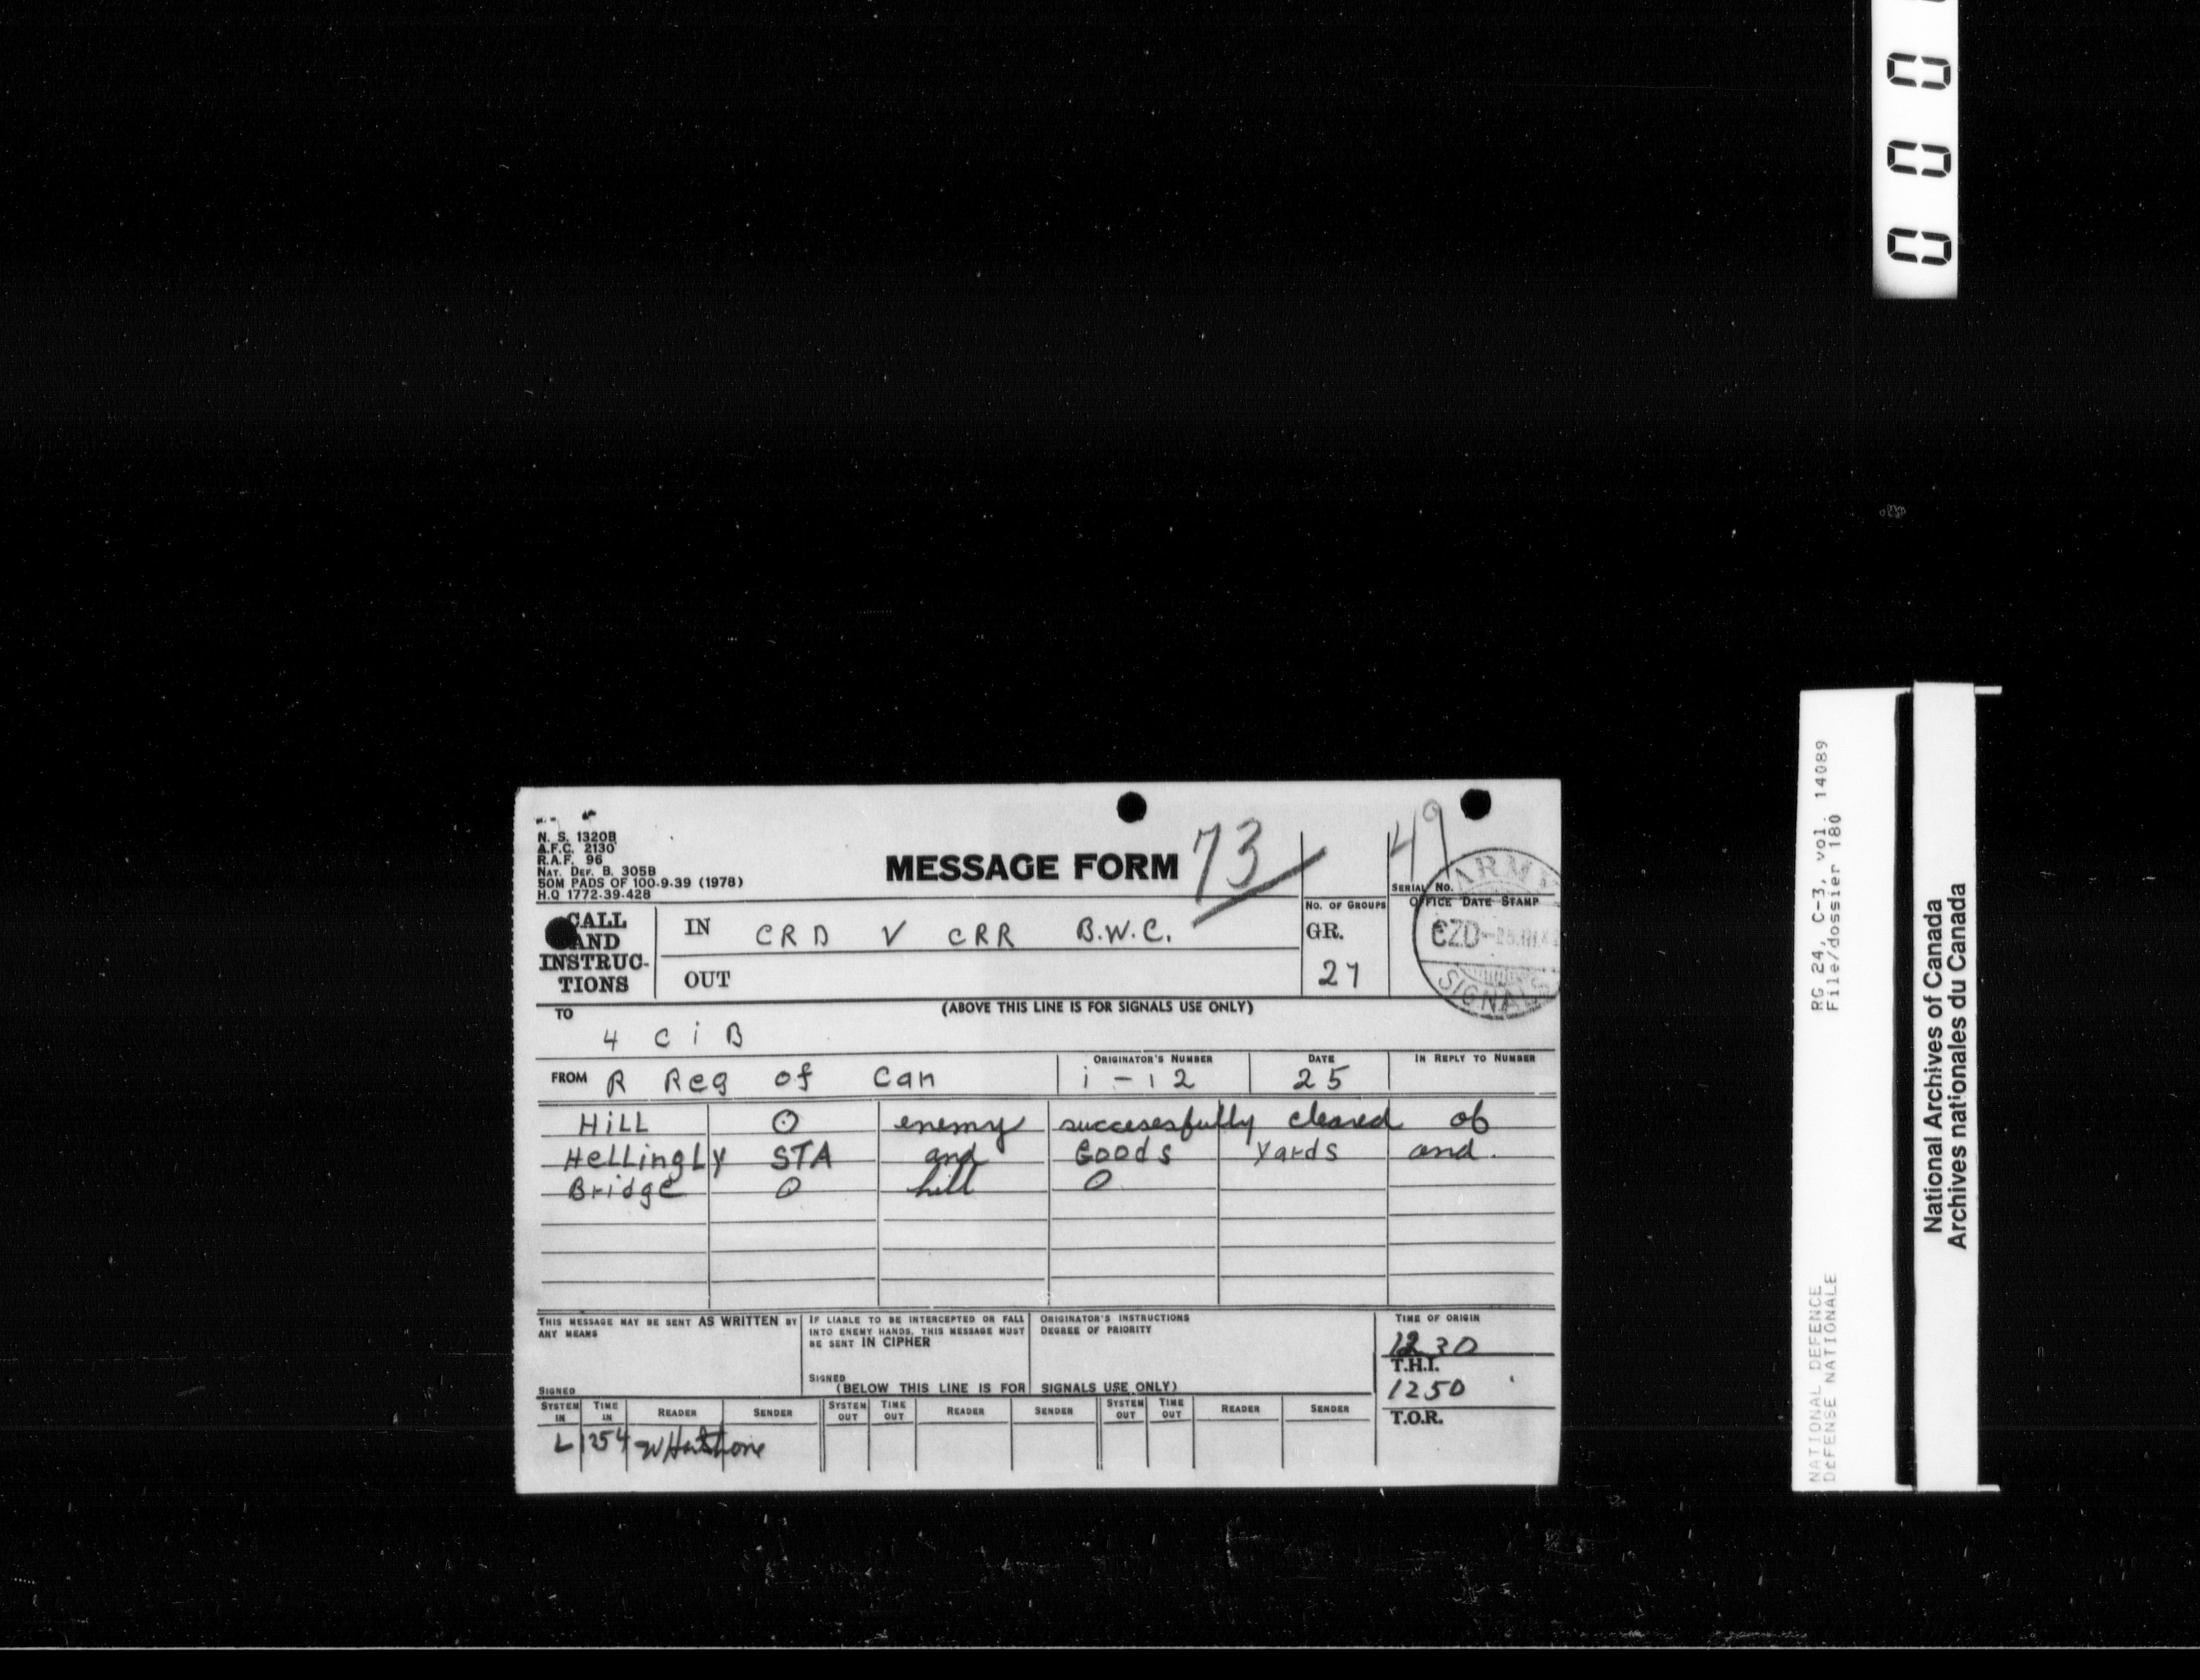 0 0 0
N. S. 1320B
A.F.C. 2130
R.A.F. 96
NAT. DEF. B. 305B
50M PADS OF 100-9-39 (1978)
H.Q 1772-39-428
MESSAGE FORM
73
49
SERIAL NO.
CALL AND INSTRUC-TIONS
IN CRD V CRR B.W.C.
OUT
NO. OF GROUPS
GR.
27
OFFICE DATE STAMP
ARMY
CZD
SIGNALS
(ABOVE THIS LINE IS FOR SIGNALS USE ONLY)
TO
4 C i B
FROM R Reg of Can
ORIGINATOR'S NUMBER
i - 12
DATE
25
IN REPLY TO NUMBER
HiLL O enemy succesesfully cleared of
HeLLingLy STA and Goods Yards and.
Bridge O hill O
THIS MESSAGE MAY BE SENT AS WRITTEN BY
ANY MEANS
SIGNED
IF LIABLE TO BE INTERCEPTED OR FALL
INTO ENEMY HANDS, THIS MESSAGE MUST
BE SENT IN CIPHER
SIGNED
ORIGINATOR'S INSTRUCTIONS
DEGREE OF PRIORITY
(BELOW THIS LINE IS FOR SIGNALS USE ONLY)
TIME OF ORIGIN
1230
T.H.I.
1250
T.O.R.
SYSTEM IN TIME IN READER SENDER SYSTEM OUT TIME OUT READER SENDER SYSTEM OUT TIME OUT READER SENDER
L 1254
RG 24, C-3, vol. 14089
File/dossier 180
NATIONAL DEFENCE
DÉFENSE NATIONALE
National Archives of Canada
Archives nationales du Canada